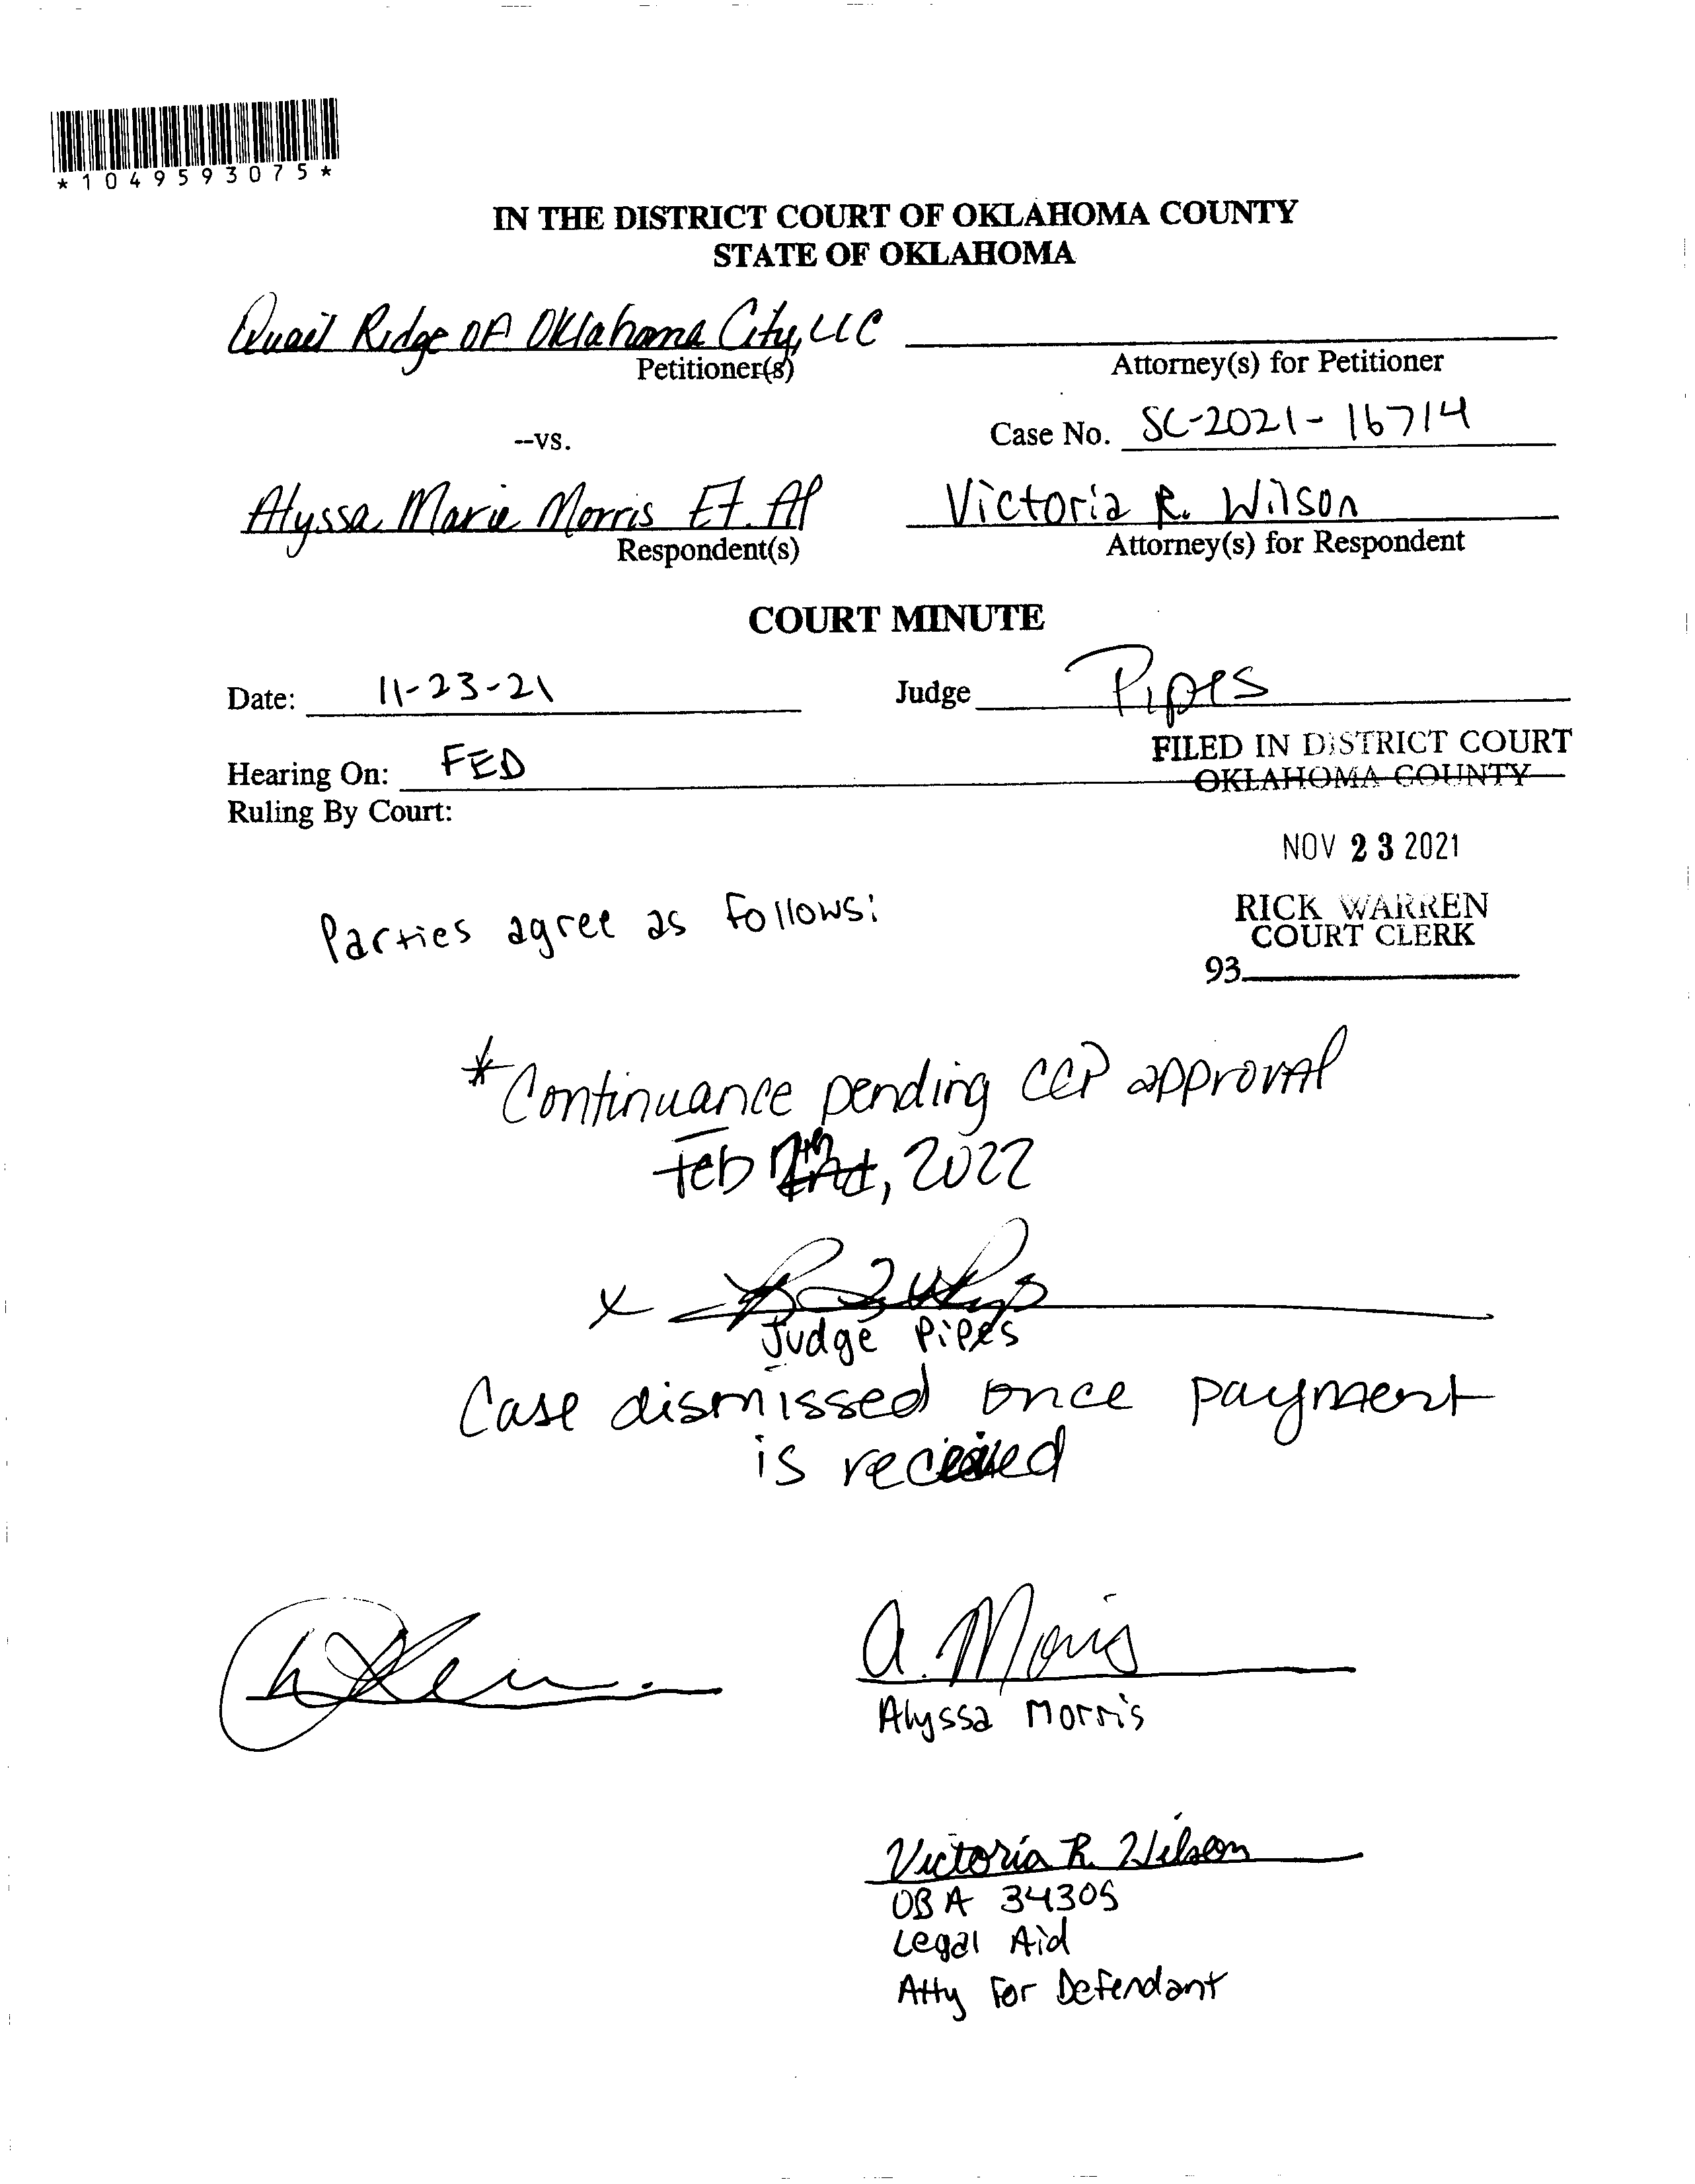 *1049593075*
IN THE DISTRICT COURT OF OKLAHOMA COUNTY
STATE OF OKLAHOMA
Quail Ridge OF Oklahoma City, LLC
Petitioner(s)
Attorney(s) for Petitioner
--vs.
Case No. SC-2021-16714
Alyssa Marie Morris Et. Al
Respondent(s)
Victoria R. Wilson
Attorney(s) for Respondent
COURT MINUTE
Date: 11-23-21 Judge Pipes
Hearing On: FED
Ruling By Court:
FILED IN DISTRICT COURT
OKLAHOMA COUNTY
NOV 23 2021
RICK WARREN
COURT CLERK
93
Parties agree as follows:
*Continuance pending CCP approval
Feb , 2022
x
Judge Pipes
Case dismissed once payment
is received
A. Morris
Alyssa Morris
Victoria R. Wilson
OBA 34305
Legal Aid
Atty For Defendant